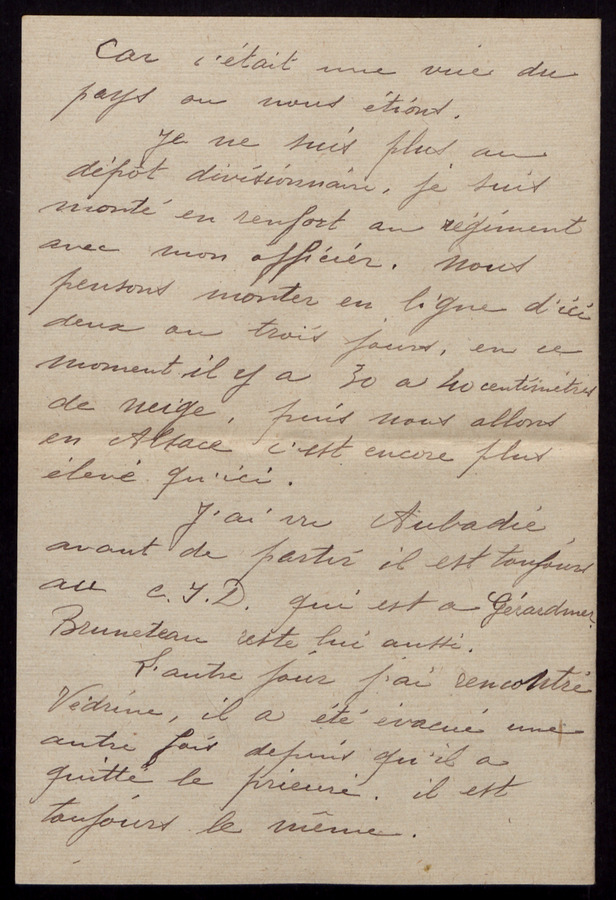 Car c'était une vue du
pays ou nous étions.
Je ne suis plus au
dépôt divisionnaire, je suis
monté en renfort au régiment
avec mon officier. Nous
pensons monter en ligne d'ici
deux ou trois jours, en ce
moment il y a 30 a 40 centimètres
de neige, puis nous allons
en Alsace c'est encore plus
élevé qu'ici.
J'ai vu Aubadie
avant de partir il est toujours
au C.I.D. qui est a Gérardmer.
Bruneteau reste lui aussi.
L'autre jour j'ai rencontré
Védrine, il a été évacué une
autre fois depuis qu'il a
quitté le prieuré. il est
toujours le même.